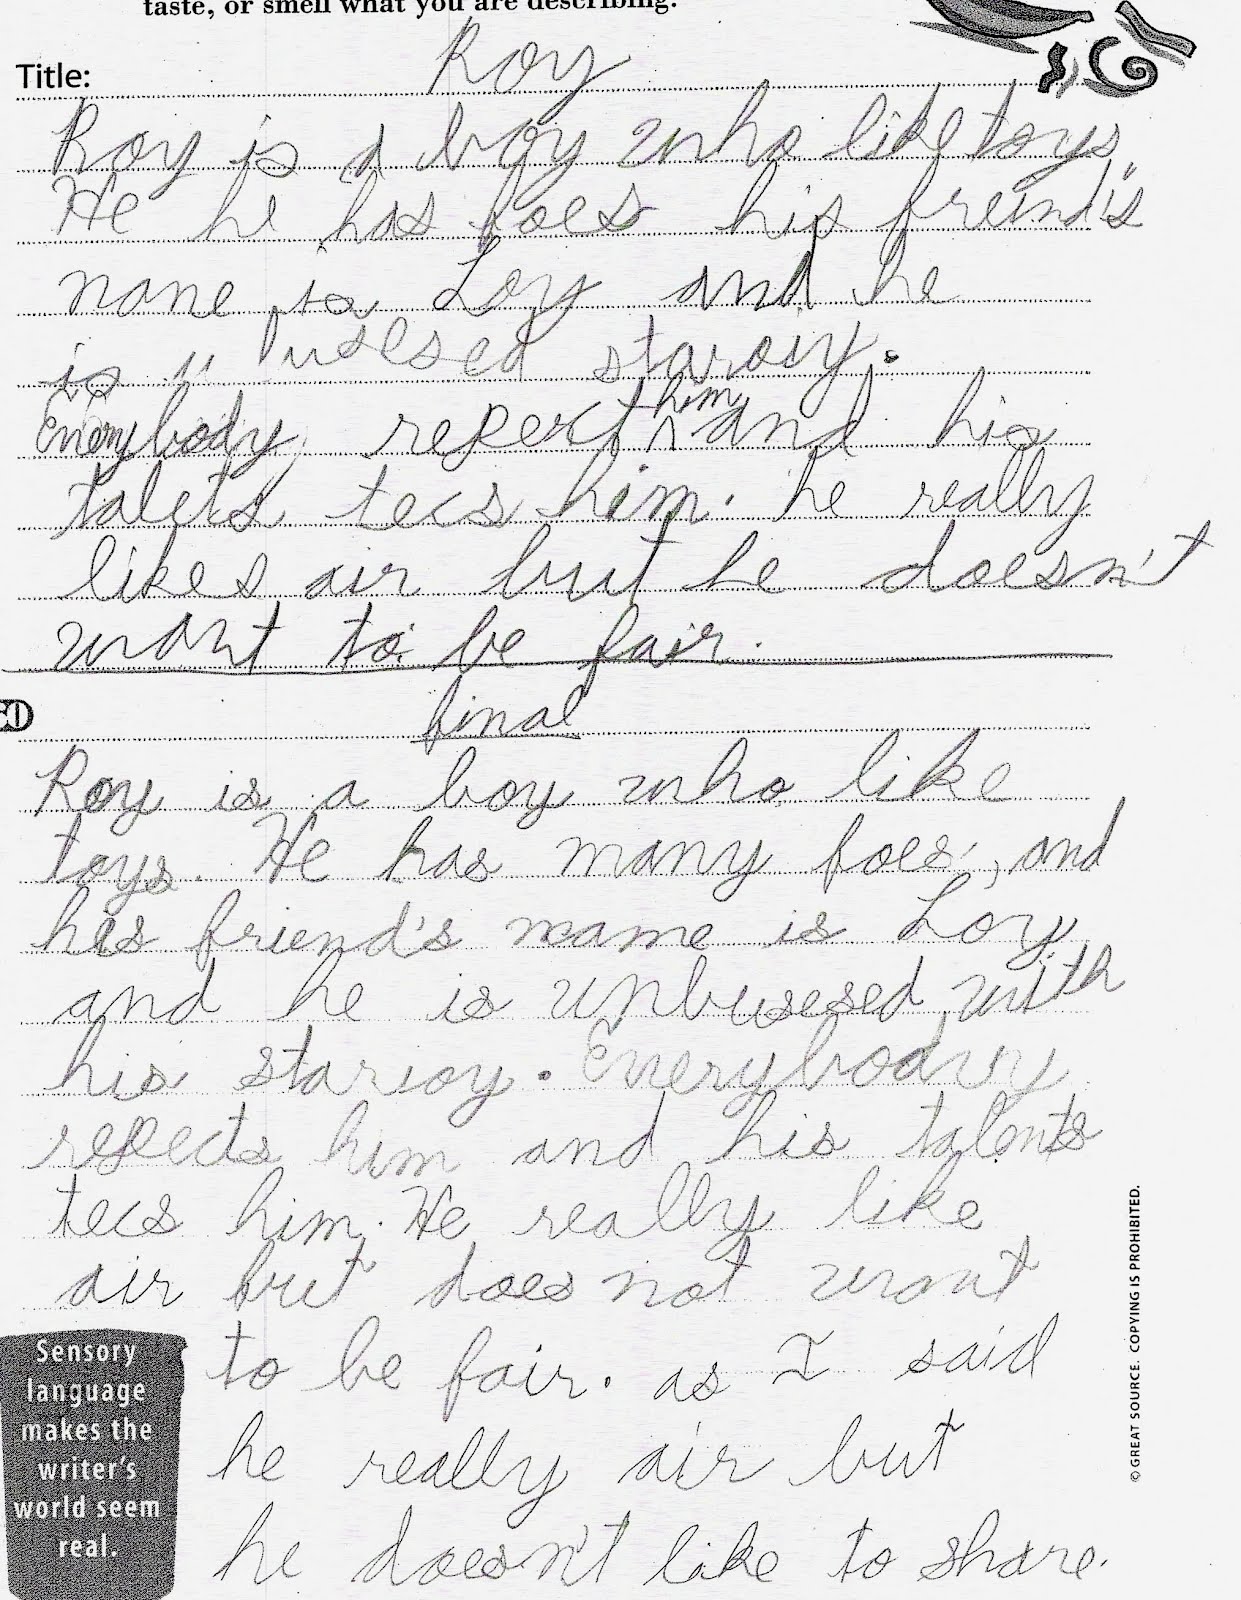 taste, or smell what you are describing.
Title: Roy
Roy is a boy who like toys.
He he has foes his freind's
name is Loy and he
is unbusesed starory.
Everybody repect him and his
talets tecs him. he really
likes air but he doesn't
want to be fair.
final
Roy is a boy who like
toys. He has many foes, and
his friend's name is Loy
and he is unbusesed with
his starioy. Everybody
repects him and his talents
tecs him. He really like
air but does not want
to be fair. as I said
he really air but
he doesn't like to share.
Sensory
language
makes the
writer's
world seem
real.
© GREAT SOURCE. COPYING IS PROHIBITED.